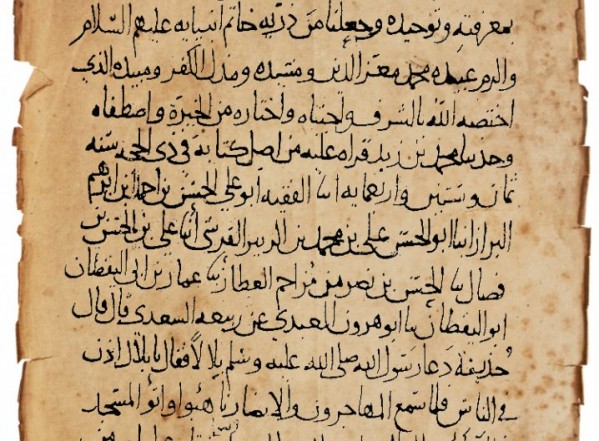 بمعرفته وتوحيده وجعلنا من ذريه خاتم أنبيايه عليهم السلام
محمد معز الدين ومشيده ومذل الكفر ومبيده الذي
اختصه الله بالشرف واجتباه واختاره من الخيرة واصطفاه
وحدثنا محمد بن زيد قراه عليه من اصل كتابه في ذي الحجه سنه
ثمان وستين واربعمايه انبا الفقيه ابو علي الحسن بن احمد بن ابرهيم
البزاز انبا ابو الحسن علي بن محمد بن الزبير القرشي أنبا علي بن الحسن بن
فضال ثنا الحسن بن نصر بن مزاحم العطار ثنا عمار بن ابي اليقظان
ابو اليقظان ثنا ابو هرون العبدي عن ربيعه السعدي قال قال
حذيفة دعا رسول الله صلى الله عليه وسلم بلالا فقال يا بلال اذن
في الناس فلما سمع المهاجرون والانصار